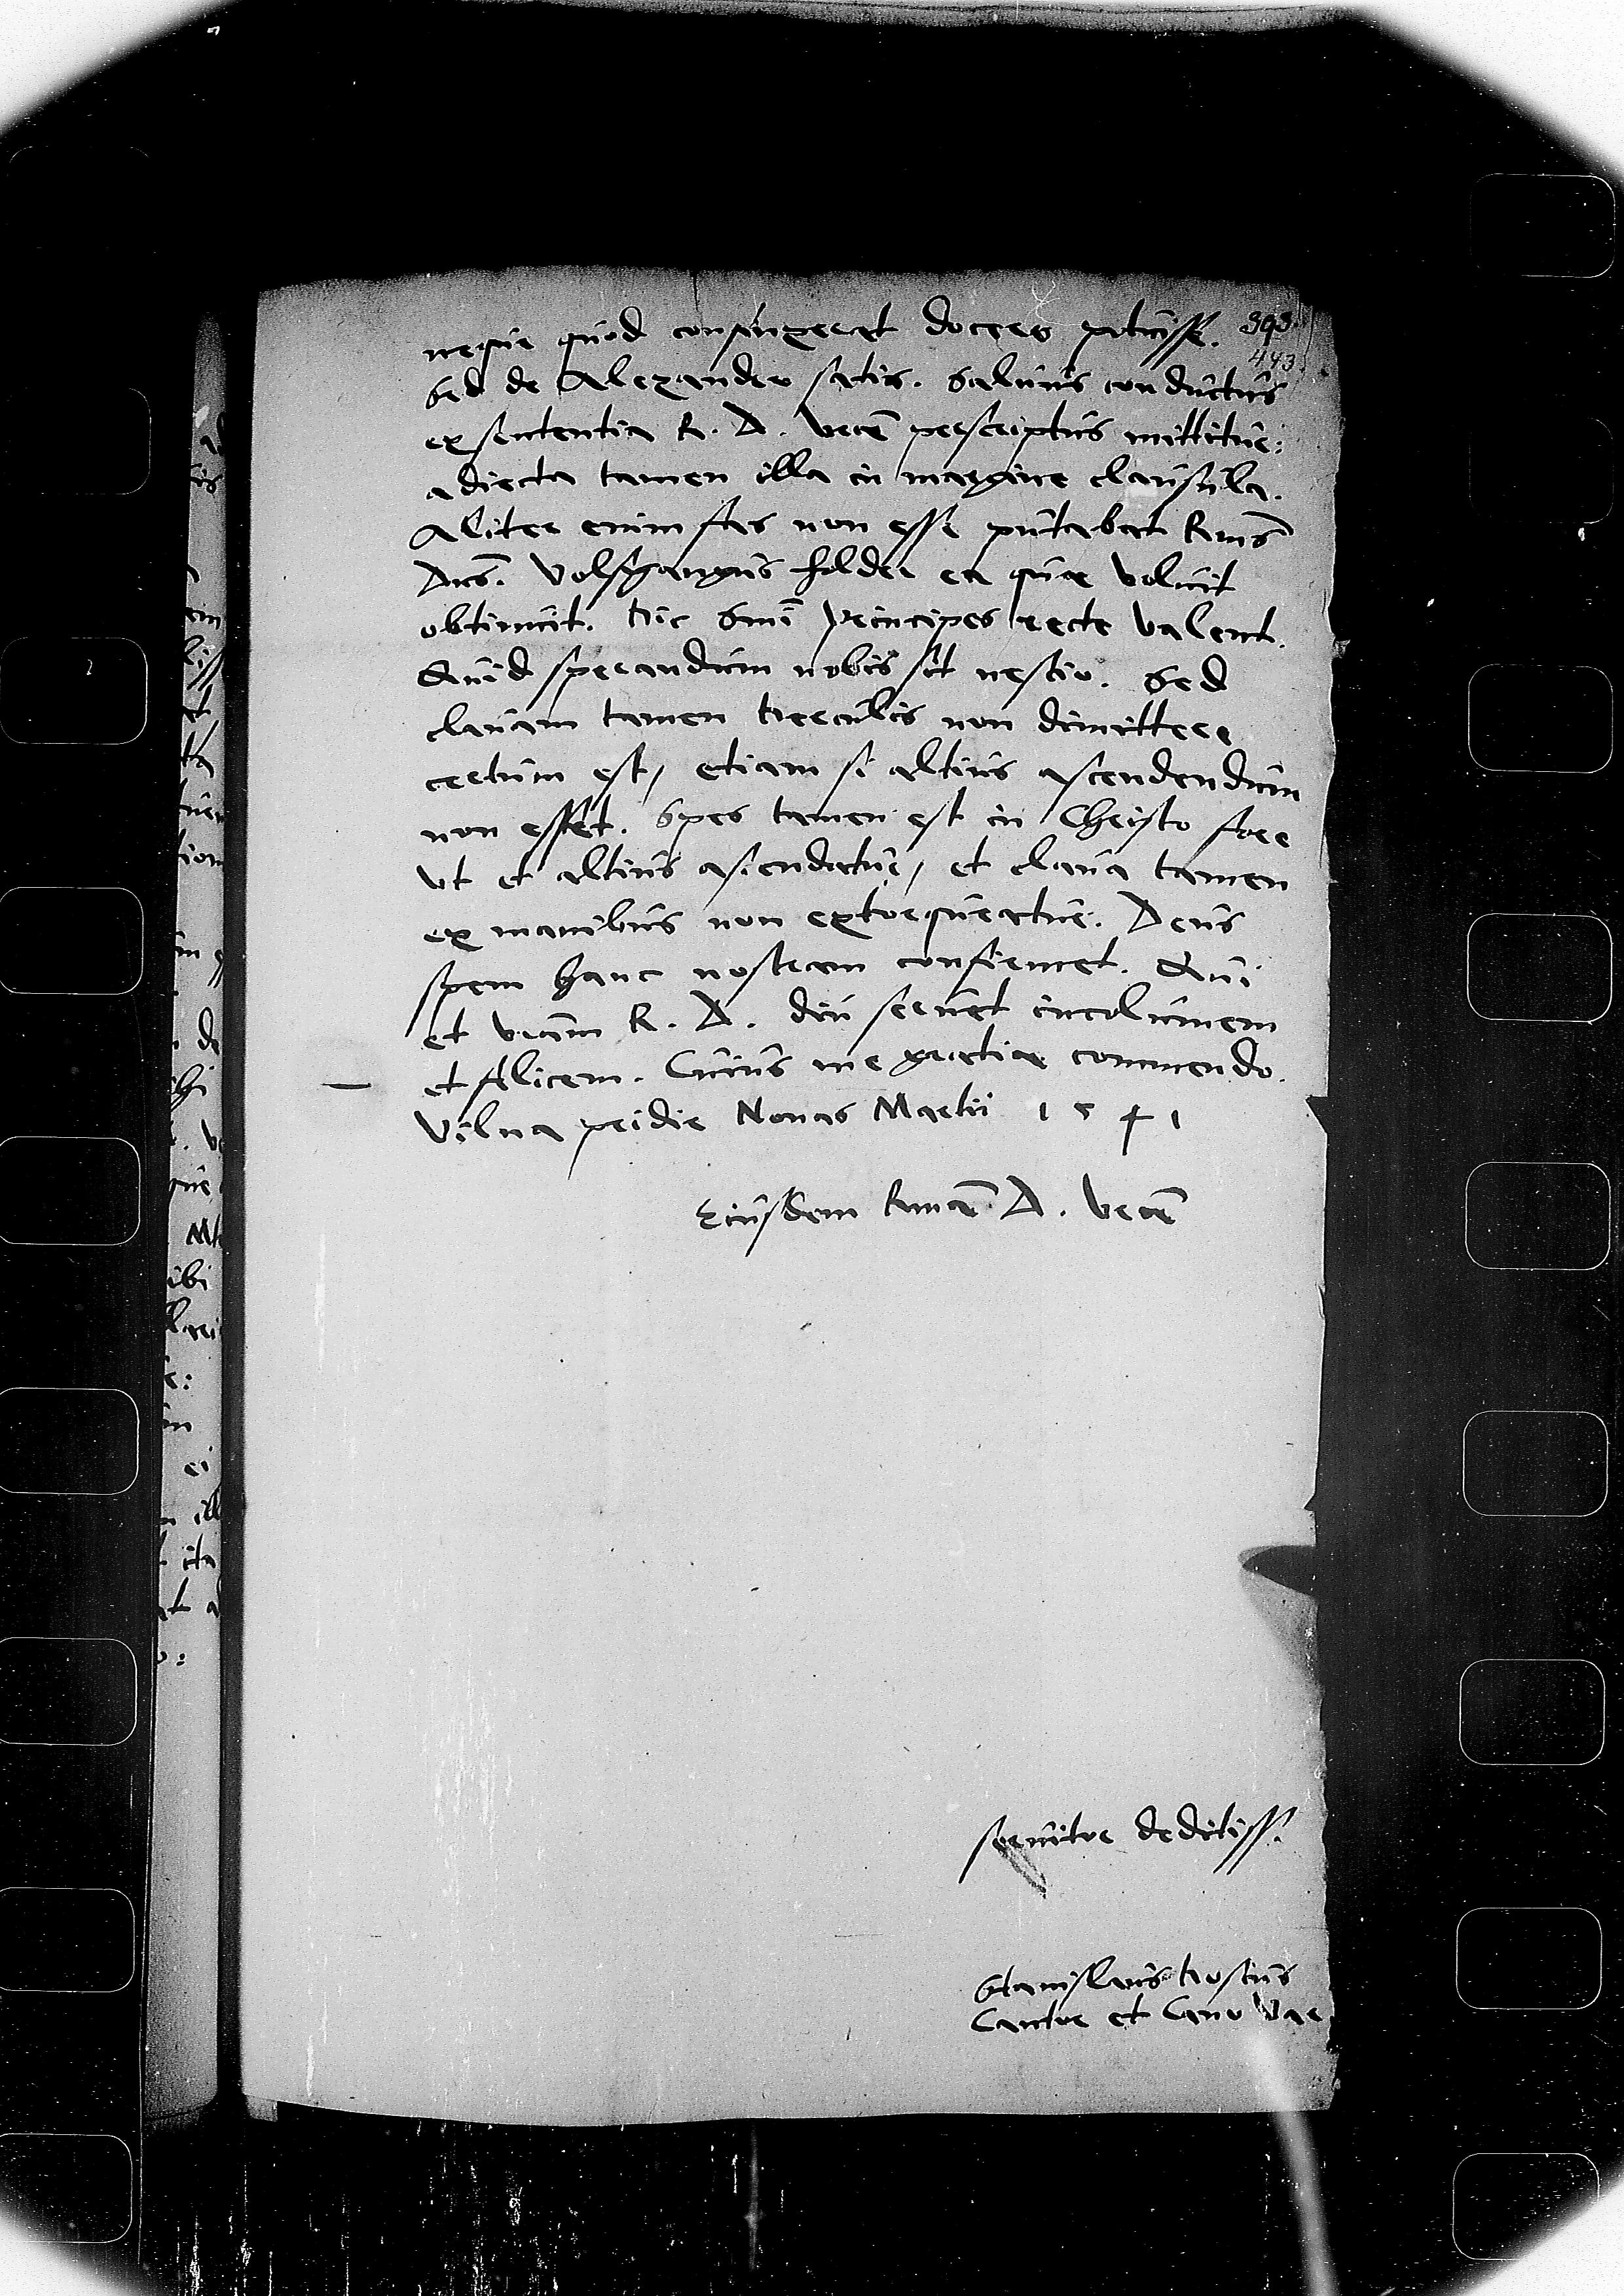 neque quod consuigeret docere potuisse. 393
443
Sed de Alexandro satis. Saluus conductus
ex sententia R. D. vrae perscriptus mittitur:
adiecta tamen illa in margine clausula.
Aliter enim fas non esse putabat Rmus
Dns. Volfgangus Holder ea quae voluit
obtinuit. Hic Smi Principes recte valent.
Quid sperandum nobis sit nescio. Sed
clauam tamen Herculis non dimittere
certum est, etiam si altius ascendendum
non esset. Spes tamen est in Christo fore
vt et altius ascendatur, et claua tamen
ex manibus non extorqueatur. Deus
spem hanc nostram confirmet. Qui
et vram R. D. diu seruet incolumem
et felicem. Cuius me gratiae commendo.
Vilna pridie Nonas Martii 1541
Eiusdem Rmae D. Vrae
seruitor deditiss.
Stanislaus Hosius
Cantor et Cano Var